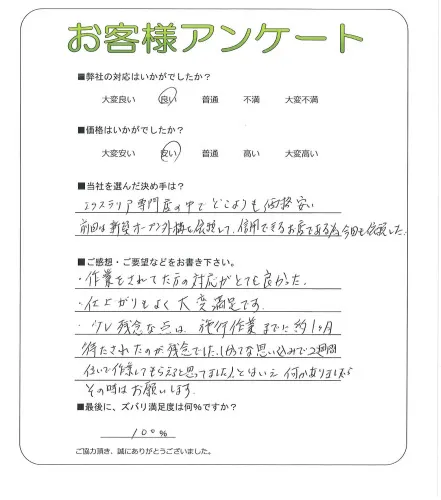 お客様アンケート
■弊社の対応はいかがでしたか？
大変良い 良い 普通 不満 大変不満
■価格はいかがでしたか？
大変安い 安い 普通 高い 大変高い
■当社を選んだ決め手は？
エクステリア専門店の中でどこよりも価格安い
前回は新築オープン外構を依頼して、信用できるお店である為今回も依頼した。
■ご感想・ご要望などをお書き下さい。
・作業をされてた方の対応がとても良かった。
・仕上がりもよく大変満足です。
・少し残念な点は、施行作業までに約1ヶ月
待たされたのが残念でした。(勝手な思い込みで2週間
位いで作業してもらえると思ってました)とはいえ何かありましたら
その時はお願いします。
■最後に、ズバリ満足度は何%ですか？
100%
ご協力頂き、誠にありがとうございました。